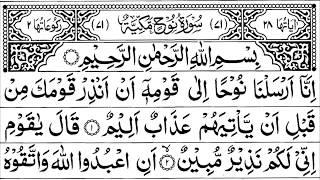 اٰیَاتُهَا ٢٨ (٧١) سُوْرَةُ نُوْحٍ مَّكِّیَّةٌ (٧١) رُكُوْعَاتُهَا ٢
بِسْمِ اللّٰهِ الرَّحْمٰنِ الرَّحِیْمِ
اِنَّاۤ اَرْسَلْنَا نُوْحًا اِلٰى قَوْمِهٖۤ اَنْ اَنْذِرْ قَوْمَكَ مِنْ
قَبْلِ اَنْ یَّاْتِیَهُمْ عَذَابٌ اَلِیْمٌ ١ قَالَ یٰقَوْمِ
اِنِّیْ لَكُمْ نَذِیْرٌ مُّبِیْنٌ ٢ اَنِ اعْبُدُوا اللّٰهَ وَاتَّقُوْهُ